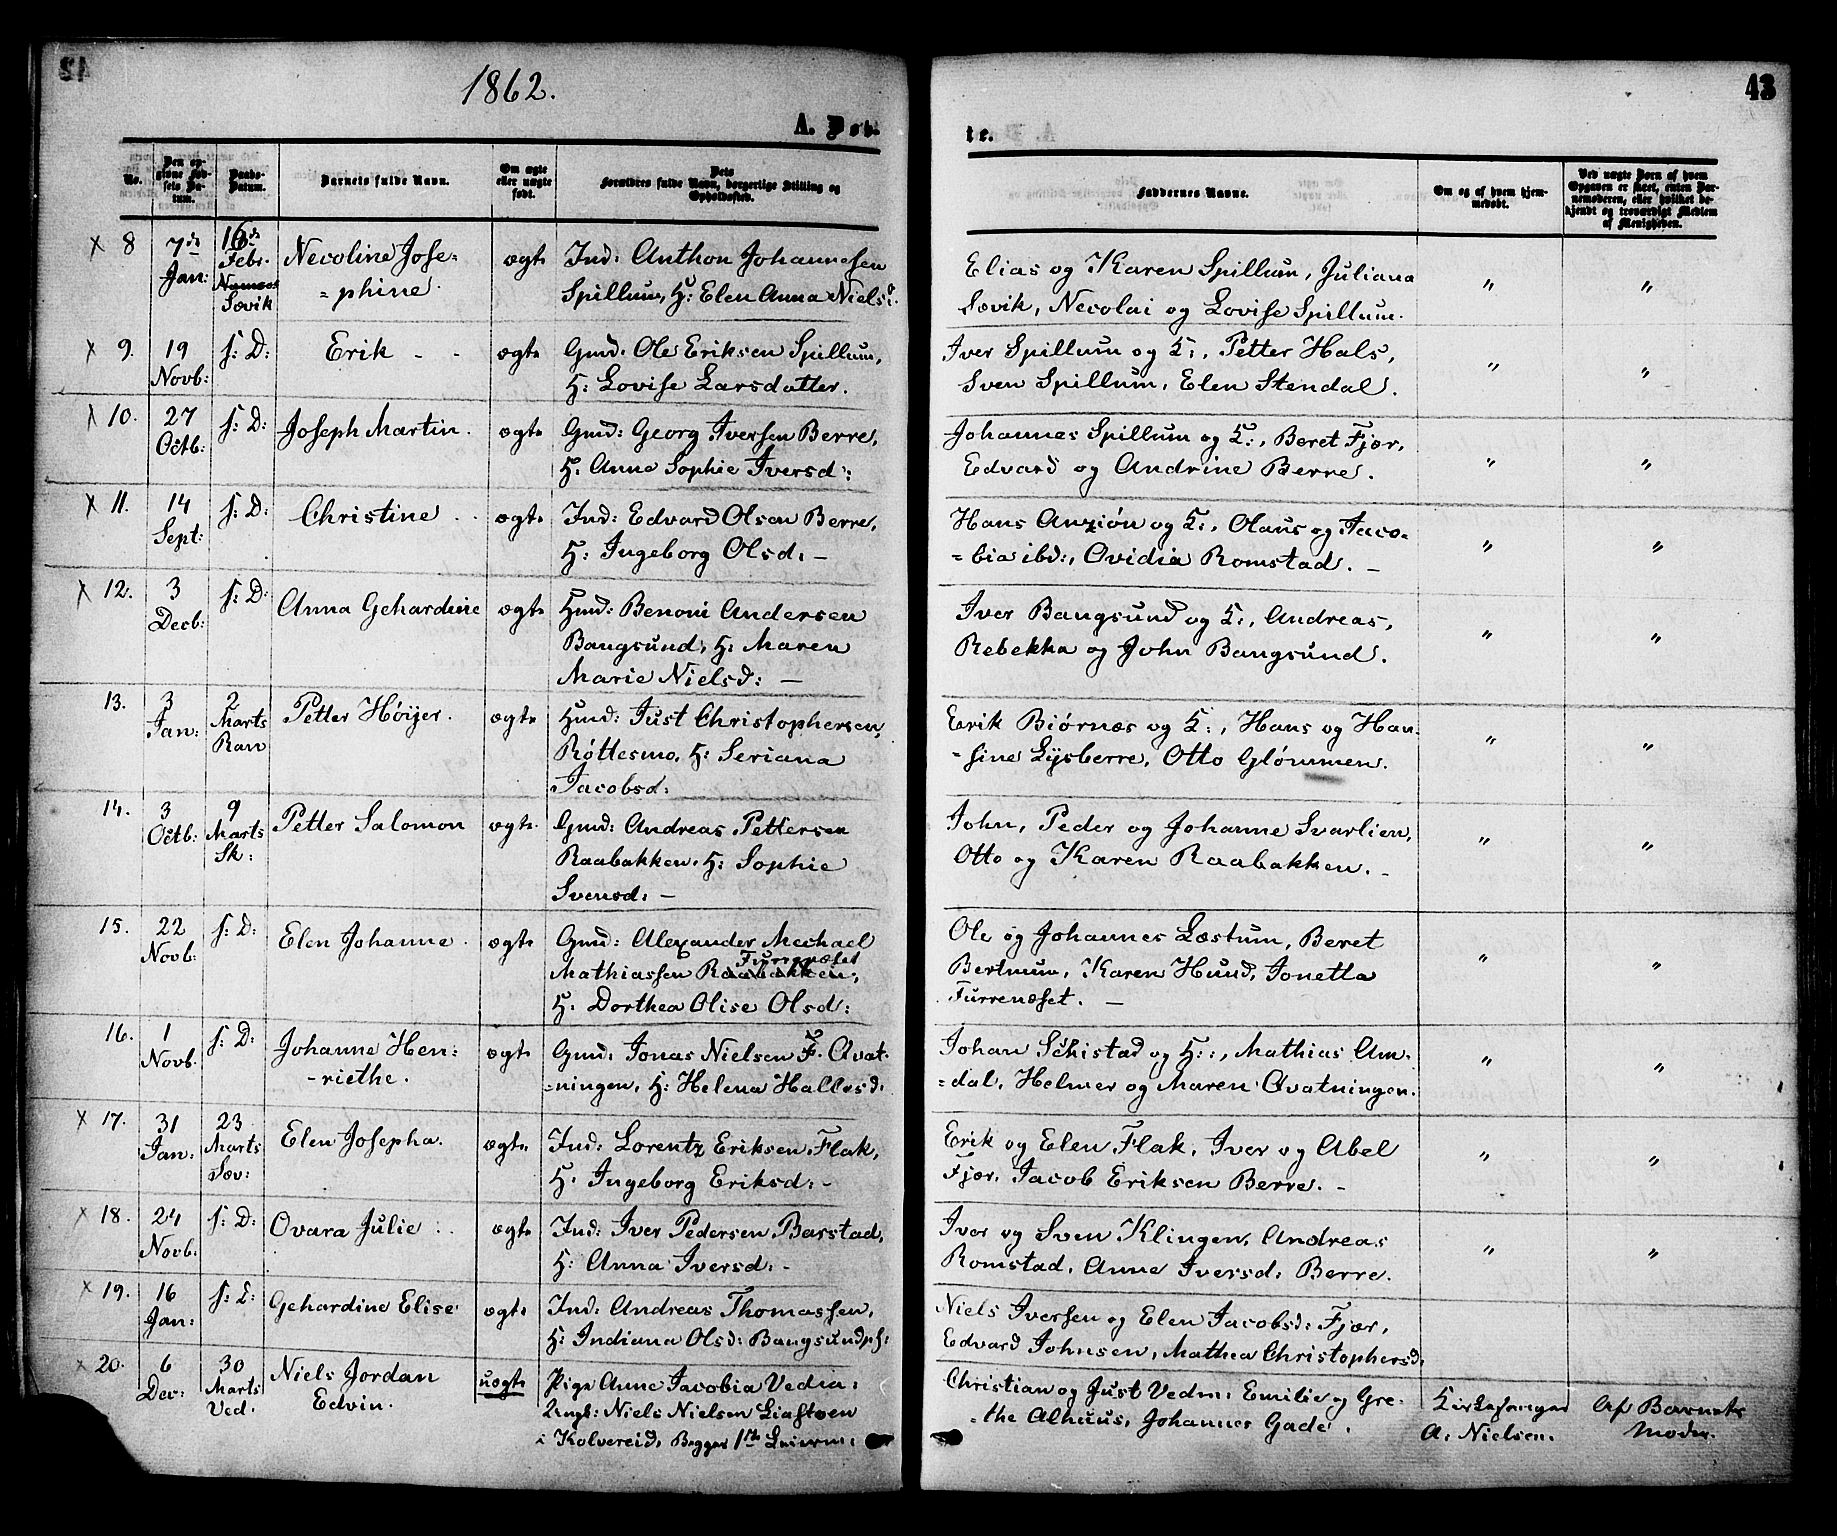 42
1862.
43
A. Døb-
te.
No.
Den op-
givne Fød-
sels Da-
tum.
Daabs-
Datum.
Barnets fulde Navn.
Om ægte
eller uægte
født.
Dets
Forældres fulde Navn, borgerlige Stilling og
Opholdssted.
Faddernes Navne.
Om og af hvem hjem-
medøbt.
Ved uægte Børn af hvem
Opgaven er skeet, enten Bar-
nemoderen, eller hvilket be-
kjendt og troværdigt Medlem
af Menigheden.
× 8 7de Jan: 16de Febr. Sævik Necoline Jose=
=phine. ægte Ind: Anthon Johannesen
Spillum, H: Elen Anna Nielsd.
Elias og Karen Spillum, Juliana
Sævik, Necolai og Lovise Spillum. " "
× 9. 19 Novb: s: D: Erik - - ægte Gmd: Ole Eriksen Spillum,
H: Lovise Larsdatter.
Iver Spillum og K:, Petter Hals,
Sven Spillum, Elen Stendal. " "
× 10. 27 Octb: s: D: Joseph Martin. ægte Gmd: Georg Iversen Berre,
H: Anne Sophie Iversd:
Johannes Spillum og K:, Beret Fjær,
Edvard og Andrine Berre. " "
× 11. 14 Sept: s: D: Christine . . ægte Ind: Edvard Olsen Berre,
H: Ingeborg Olsd: -
Hans Anziøn og K:, Olaus og Jaco=
=bia ibd:, Ovidia Romstad. - " "
× 12. 3 Decb: s: D: Anna Gehardine ægte Hmd: Benoni Andersen
Bangsund, H: Maren
Marie Nielsd: -
Iver Bangsund og K:, Andreas,
Rebekka og John Bangsund. " "
13. 3 Jan: 2 Marts Ran Petter Høijer. ægte Hmd: Just Christophersen,
Røttesmo, H: Seriana
Jacobsd:
Erik Biørnæs og K:, Hans og Han-
-sine Lysberre, Otto Glømmen. " "
14. 3 Octb: 9 Marts Sk: Petter Salomon ægte. Gmd: Andreas Pettersen
Raabakken, H: Sophie
Svensd: -
John, Peder og Johanne Svarlien,
Otto og Karen Raabakken. - " "
15. 22 Novb: s: D: Elen Johanne. ægte Gmd: Alexander Mechael
Furrenæset
Mathiassen Raabakken,
H: Dorthea Olise Olsd:
Ole og Johannes Læstum, Beret
Bertnum, Karen Hund, Jonetta
Furrenæset. - " "
16. 1 Novb. s: D: Johanne Hen=
-riethe. ægte Gmd: Jonas Nielsen Ø. Avat-
=ningen, H: Helena Hallesd.
Johan Schistad og H:, Mathias Am-
=dal, Helmer og Maren Avatningen. " "
× 17. 31 Jan: 23 Marts Sæv: Elen Josepha. ægte. Ind: Lorentz Eriksen Flak,
H: Ingeborg Eriksd: -
Erik og Elen Flak, Iver og Abel
Fjær, Jacob Eriksen Berre. - " "
× 18. 24 Novb: s: D: Ovara Julie . . ægte Ind: Iver Pedersen Barstad,
H: Anna Iversd: -
Iver og Sven Klingen, Andreas
Romstad, Anne Iversd: Berre. " "
× 19. 16 Jan: s: D: Gehardine Elise ægte. Ind: Andreas Thomassen,
H: Indiana Olsd: Bangsundpl:
Niels Iversen og Elen Jacobsd: Fjær,
Edvard Johnsen, Mathea Christophersd.
× 20. 6 Dec: 30 Marts Ved. Niels Jordan
Edvin. uægte Pige Anne Jacobia Vedia:
Ungk: Niels Nielsen Liastøen
i Kolvereid, Begges 1ste Leierm:
Christian og Just Vedm: Emilie og Gre-
=the Alhuus, Johannes Gade.
Kirkesanger
A: Nielsen.
Af Barnets
Moder.